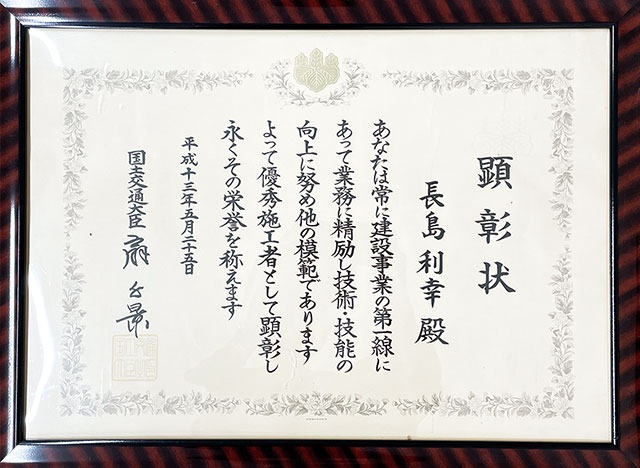 顕彰状
長島利幸殿
あなたは常に建設事業の第一線に
あって業務に精励し技術・技能の
向上に努め他の模範であります
よって優秀施工者として顕彰し
永くその栄誉を称えます
平成十三年五月二十五日
国土交通大臣 扇千景